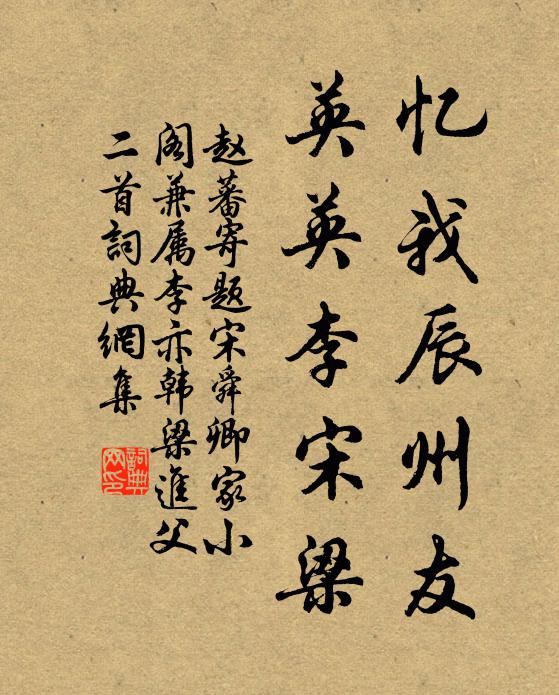 忆我辰州友
英英李宋梁
赵蕃寄题宋舜卿家小
阁兼属李亦韩梁進父
二首詞典網集
詞典
网印